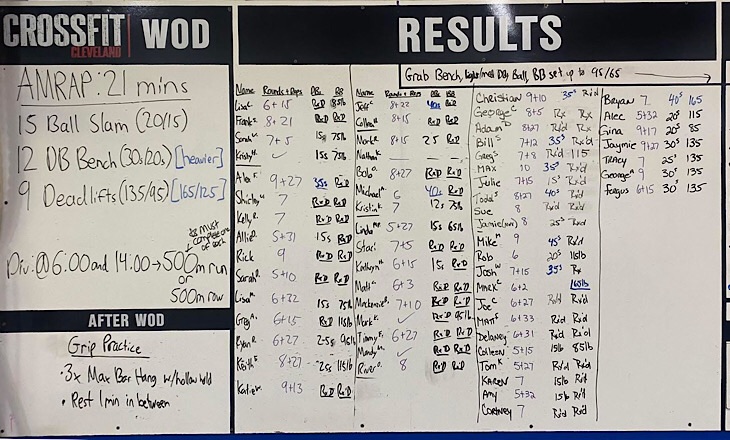 CROSSFIT
CLEVELAND
WOD
AMRAP: 21 mins
15 Ball Slam (20/15)
12 DB Bench (30s/20s) [heavier]
9 Deadlifts (135/95) [165/125]
* Must complete one of each
Div: @ 6:00 and 14:00 → 500m run
or
500m row
AFTER WOD
Grip Practice
• 3x Max Bar Hang w/hollow hold
• Rest 1 min in between
RESULTS
Grab Bench, Ball, BB set up to 95/65
Name Rounds + Reps DBs BB
Lisa 6+15 RxD 85lb
Frank 8+21 RxD RxD
Sarah 7+5 15s 75lb
Kristy ✓ 15s 75lb
Alex F. 9+27 35s RxD
Shirley RxD RxD
Kelly 7 RxD RxD
Allie 5+31 15s RxD
Rick 9 RxD RxD
Sarah 5+10 RxD RxD
Lisa 6+32 15s 75lb
Greg 6+15 RxD 115lb
Ryan 6+27 25s 95lb
Keith 8+27 25s 115lb
Katie 9+13 RxD RxD
Name Rounds + Reps DBs BB
Jeff 8+22 40s RxD
Colleen RxD RxD
Mark 8+15 25 RxD
Nathan — — —
Bob 8+27 RxD RxD
Michael 6 40s RxD
Kristin 7 12s 73lb
Linda 5+27 15s 65lb
Staci 7+5 RxD RxD
Kathryn 6+15 15s RxD
Matt 6+3 RxD RxD
Mackenzie 7+10 RxD RxD
Mark ✓ RxD 95lb
Timmy 6+27 RxD RxD
Mandy ✓ RxD RxD
River 8 RxD RxD
Christian 9+10 35s Rx'd
George 8+5 Rx Rx
Adam 8+27 Rx'd Rx
Bill 7+12 35s Rx'd
Greg 7+8 Rx'd 115
Max 10 35s Rx'd
Julie 7+15 15s Rx'd
Todd 8+27 40s Rx'd
Sue 8 Rx'd Rx'd
Jamie 8 25s Rx'd
Mike 9 45s Rx'd
Rob 6 20s 115lb
Josh 7+15 35s Rx
Mack 6+2 165lb
Joe 6+27 Rx'd Rx'd
Matt 6+33 Rx'd Rx'd
Delaney 6+31 Rx'd Rx'd
Colleen 5+15 15lb 85lb
Tom 5+27 Rx'd Rx'd
Karen 7 15lb Rx'd
Amy 5+32 15lb Rx'd
Courtney 7 Rx'd Rx'd
Bryan 7 40s 165
Alec 5+32 20s 115
Gina 9+17 20s 85
Jaymie 9+27 30s 135
Tracy 7 25s 135
George 9 30s 135
Fergus 6+15 30s 135